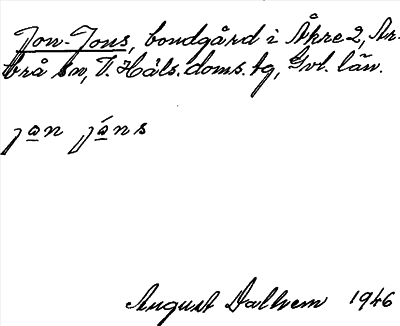 Jon-Jons, bondgård i Åkre 2, Ar-
brå sn, V. Häls. doms. tg, Gvl. län.
jan jáns
August Dalhem 1946